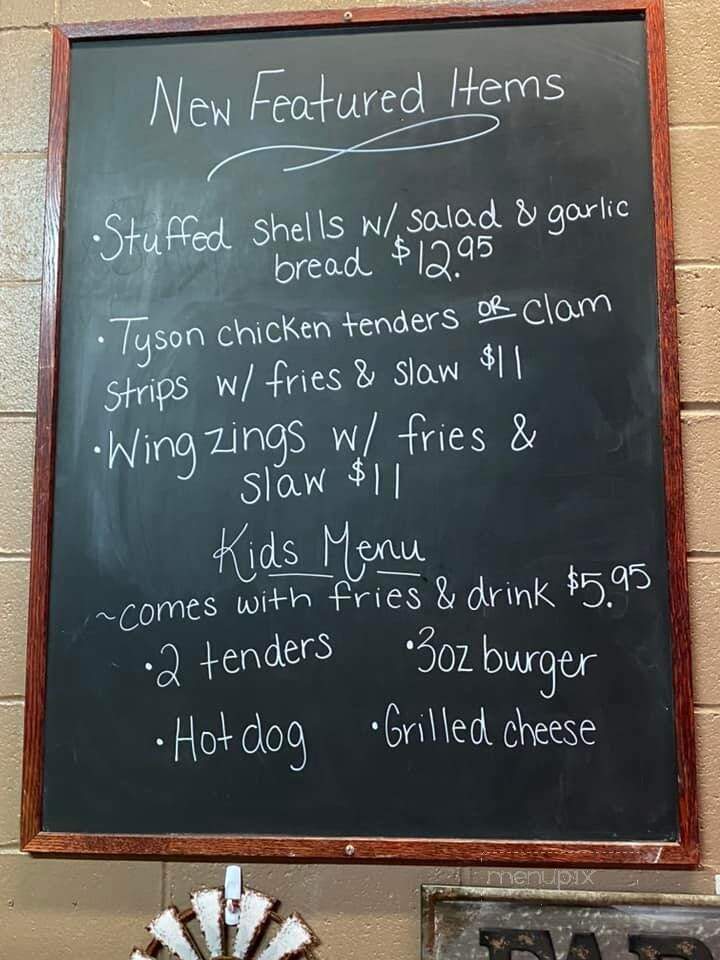 New Featured Items
•Stuffed shells w/ salad & garlic
bread $12.95
•Tyson chicken tenders OR clam
strips w/ fries & slaw $11
•Wing zings w/ fries &
slaw $11
Kids Menu
~comes with fries & drink $5.95
•2 tenders •3oz burger
•Hot dog •Grilled cheese
menupix